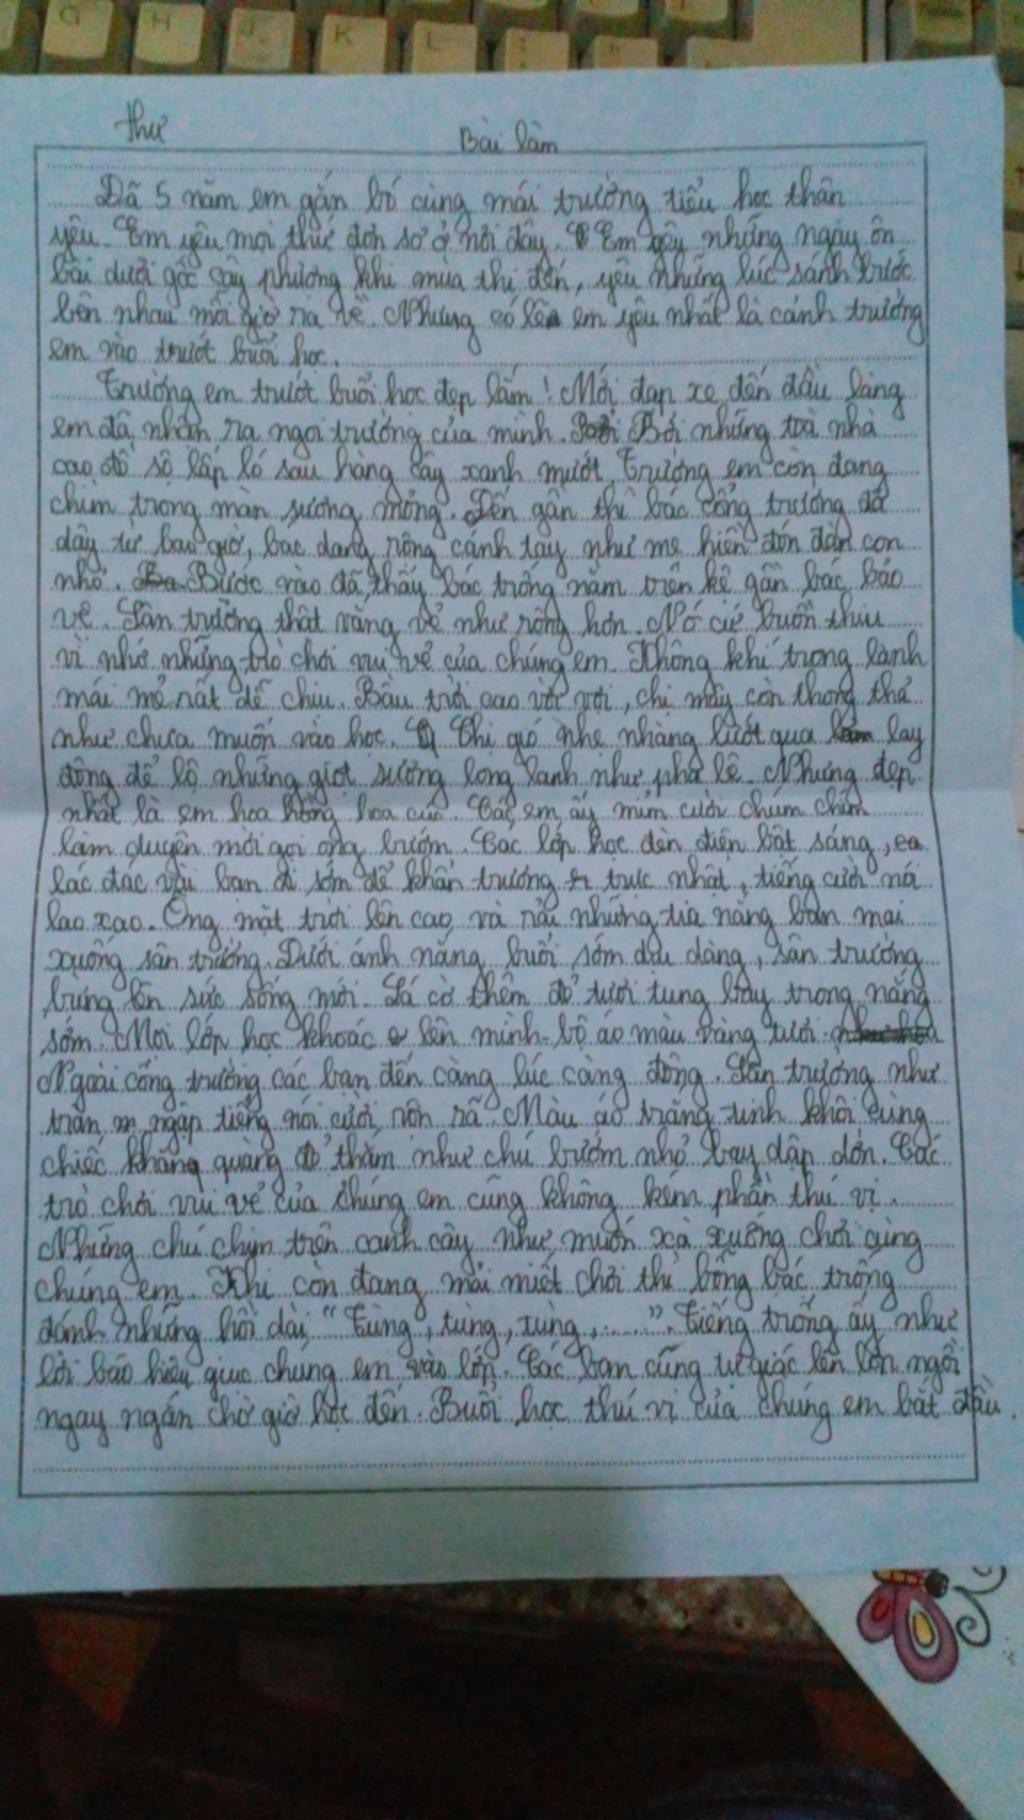 G H J K L
thư
Bài làm
Đã 5 năm em gắn bó cùng mái trường tiểu học thân
yêu. Em yêu mọi thứ đơn sơ ở nơi đây. Em yêu những ngày ôn
bài dưới gốc cây phượng khi mùa thi đến, yêu những lúc sánh bước
bên nhau mỗi giờ ra về. Nhưng có lẽ em yêu nhất là cảnh trường
em vào trướt buổi học.
Trường em trướt buổi học đẹp lắm! Mới đạp xe đến đầu làng
em đã nhận ra ngôi trường của mình. Bởi những toà nhà
cao đồ sộ lấp ló sau hàng cây xanh mướt. Trường em còn đang
chìm trong màn sương mỏng. Đến gần thì bác cổng trường đã
dậy từ bao giờ, bác dang rộng cánh tay như mẹ hiền đón đàn con
nhỏ. Bước vào đã thấy bác trống nằm trên kệ gần bác bảo
vệ. Sân trường thật vắng vẻ như rộng hơn. Nó cứ buồn thiu
vì nhớ những trò chơi vui vẻ của chúng em. Không khí trong lành
mái mẻ rất dễ chịu. Bầu trời cao vời vợi, chị mây còn thong thả
như chưa muốn vào học. Chị gió nhẹ nhàng lướt qua lay
động để lộ những giọt sương long lanh như pha lê. Nhưng đẹp
nhất là em hoa hồng hoa cúc. Các em ấy mỉm cười chúm chím
làm duyên mời gọi ong bướm. Các lớp học đèn điện bật sáng,
lác đác vài bạn đi sớm để khẩn trương trực nhật, tiếng cười nói
lao xao. Ông mặt trời lên cao và rải những tia nắng ban mai
xuống sân trường. Dưới ánh nắng buổi sớm dịu dàng, sân trường
bừng lên sức sống mới. Lá cờ thêm đỏ tươi tung bay trong nắng
sớm. Mọi lớp học khoác lên mình bộ áo màu vàng tươi.
Ngoài cổng trường các bạn đến càng lúc càng đông. Sân trường như
tràn ngập tiếng nói cười rôn rã. Màu áo trắng tinh khôi cùng
chiếc khăng quàng đỏ thắm như chú bướm nhỏ bay dập dờn. Các
trò chơi vui vẻ của chúng em cũng không kém phần thú vị.
Những chú chim trên cành cây như muốn xà xuống chơi cùng
chúng em. Khi còn đang mải miết chơi thì bỗng bác trống
đánh những hồi dài "Tùng, tùng, tùng,......". Tiếng trống ấy như
lời báo hiệu giục chúng em vào lớp. Các bạn cũng tự giác lên lớp ngồi
ngay ngắn chờ giờ học đến. Buổi học thú vị của chúng em bắt đầu.